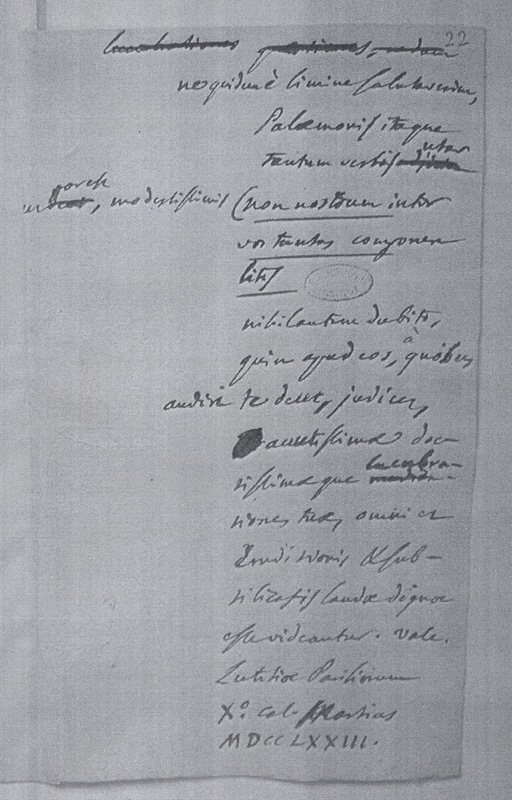 22
lucubrationes
ne quidem è limine salutaverim,
Palæmonis itaque
tantum verbis utar
modestissimis (non nostrum inter
vos tantas componere
lites
nihil autem dubito,
quin apud eos, à quibus
audiri te decet, judices,
acutissimæ doc-
tissimæque lucubra-
tiones tuæ, omni et
Eruditionis & sub-
tilitatis laude dignæ
esse videantur. vale.
Lutetiæ Parisiorum
X.º cal. Martias
MDCCLXXIII.